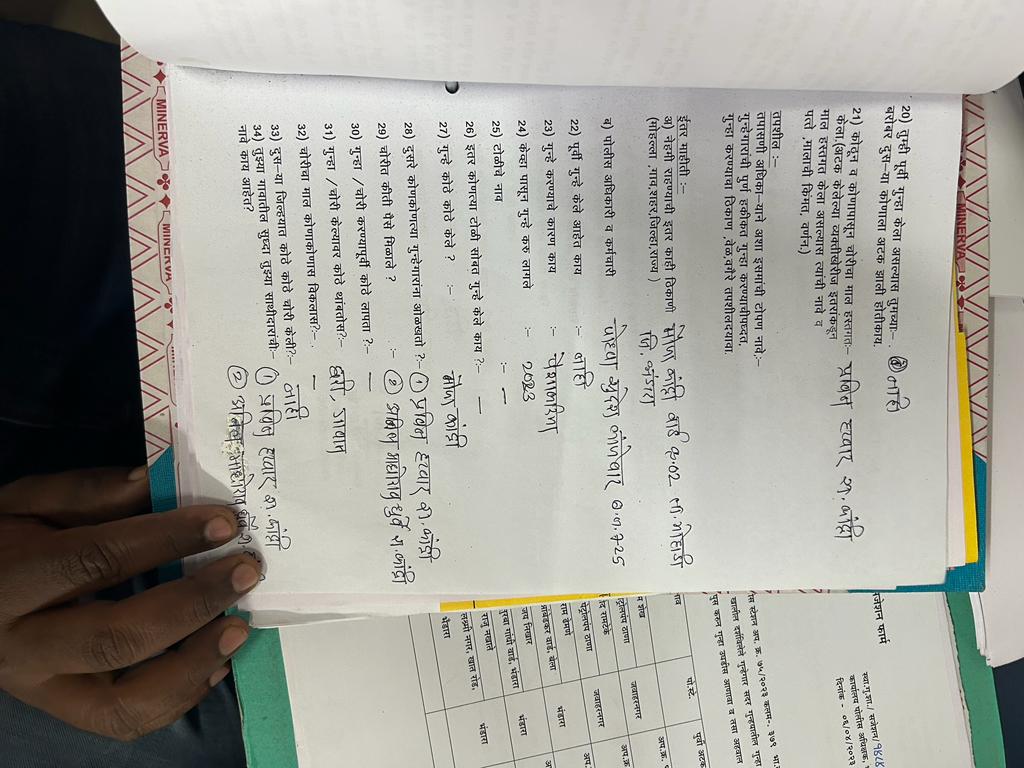 MINERVA
20) तुम्ही पूर्वी गुन्हा केला असल्यास तुमच्याः– . नाही
बरोबर दुस–या कोणाला अटक झाली होतीकाय.
21) कोठून व कोणापासून चोरीचा माल हस्तगतः– प्रविन हटवार रा. कांद्री
केला.(अटक केलेल्या व्यक्तीखेरीज इतरांकडून
माल हस्तगत केला असल्यास त्यांची नावे व
पत्ते ,मालाची किंमत, वर्णन.)
तपशील :–
तपासणी अधिका–याने अशा इसमांची टोपण नावे.:–
गुन्हेगारांची पुर्ण हकीकत गुन्हा करण्याचीपध्दत,
गुन्हा करण्याचा ठिकाण ,वेळ,वगैरे तपशीलदयावा.
ईतर माहीती :–
अ) नेहमी राहण्याची इतर काही ठिकाणी मौजा कांद्री वार्ड क्र.02 ता. मोहाडी
(मोहल्ला ,गाव,शहर,जिल्हा,राज्य ) जि. भंडारा
ब) पोलीस अधिकारी व कर्मचारी पोहवा सुदेश ब.न. 725
22) पूर्वी गुन्हे केले आहेत काय :– नाही
23) गुन्हे करण्याचे कारण काय :– पैशाकरिता
24) केव्हा पासून गुन्हे करु लागले :– 2023
25) टोळीचे नाव :– –
26) इतर कोणत्या टोळी सोबत गुन्हे केले काय ?:– –
27) गुन्हे कोठे कोठे केले ? :– मौजा कांद्री
28) दुसरे कोणकोणत्या गुन्हेगारांना ओळखतो ?:– ① प्रविन हटवार रा. कांद्री
29) चोरीत कीती पैसे मिळाले ? :– ② अनिल माधोराव धुर्वे रा. कांद्री
30) गुन्हा /चोरी करण्यापूर्वी कोठे लापता ?:– –
31) गुन्हा /चोरी केल्यावर कोठे थांबतोस?:– घरी, गावात
32) चोरीचा माल कोणाकोणास विकलास?:– . –
33) दुस–या जिल्हयात कोठे कोठे चोरी केली?:– नाही
34) तुझ्या गावातील सुध्दा तुझ्या साथीदारांची:– ① प्रविन हटवार रा. कांद्री
नावे काय आहेत? ② अनिल माधोराव धुर्वे रा.
MINERVA
MINERVA
जेशन फार्म
स्था.गु.शा./ सजेशन/
कार्यालय पोलीस अधिक्षक,
दिनांक - ०६/०४/२०२३
स स्टेशन अप. क्र. ७५/२०२३ कलम-. ३७९ भा.
खालील दर्शविलेले गुन्हेगार सदर गुन्हयातील गुन्हा
पुस करुन गुन्हा उघडीस आणावा व तसा अहवाल
पो.स्टे. पुर्वी अटक
शेख जवाहरनगर अप.क्र.
ट्रोलपंप ठाणा
रामटेके जवाहरनगर अप.क्र.
पेट्रोलपंप ठाणा
राम डेमणे भंडारा अप.
आंबेडकर वार्ड, बेला
जय निखार भंडारा
गांधी वार्ड, भंडारा
राजु नखाते भंडारा
लक्ष्मी नगर, खात रोड,
भंडारा